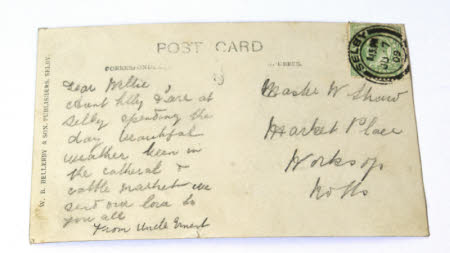 POST CARD
W. B. BELLERBY & SON, PUBLISHERS, SELBY.
SELBY
JU 7
09
Dear Willie
Aunt Lilly & I are at
Selby spending the
day beautiful
weather been in
the catheral &
cattle market we
send our love to
you all
from Uncle Ernest
Master W Shaw
Market Place
Worksop
Notts